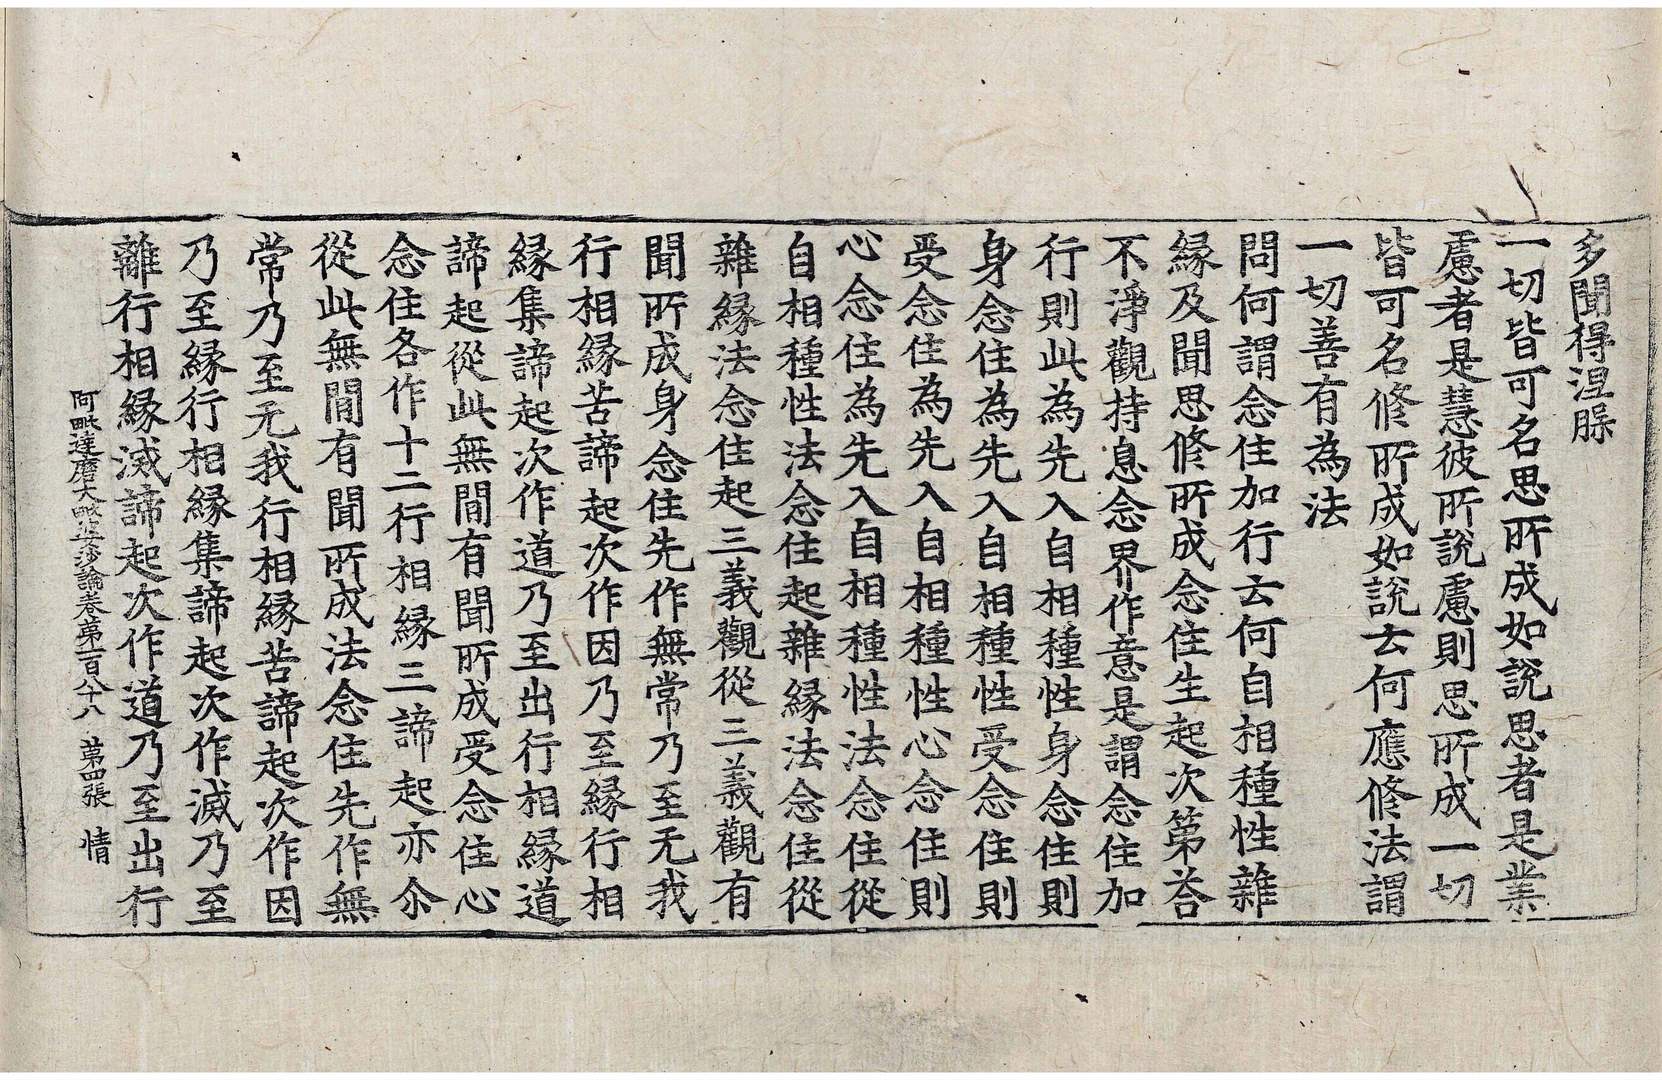 多聞得涅槃
一切皆可名思所成如說思者是業
慮者是慧彼所說慮則思所成一切
皆可名修所成如說去何應修法謂
一切善有為法
問何謂念住加行去何自相種性雜
緣及聞思修所成念住生起次第荅
不淨觀持息念界作意是謂念住加
行則此為先入自相種性身念住則
身念住為先入自相種性受念住則
受念住為先入自相種性心念住則
心念住為先入自相種性法念住從
自相種性法念住起雜緣法念住從
雜緣法念住起三義觀從三義觀有
聞所成身念住先作無常乃至无我
行相緣苦諦起次作因乃至緣行相
緣集諦起次作道乃至出行相緣道
諦起從此無間有聞所成受念住心
念住各作十二行相緣三諦起亦尒
從此無間有聞所成法念住先作無
常乃至无我行相緣苦諦起次作因
乃至緣行相緣集諦起次作滅乃至
離行相緣滅諦起次作道乃至出行
阿毗達磨大毗婆沙論卷第一百八十八 第四張 情